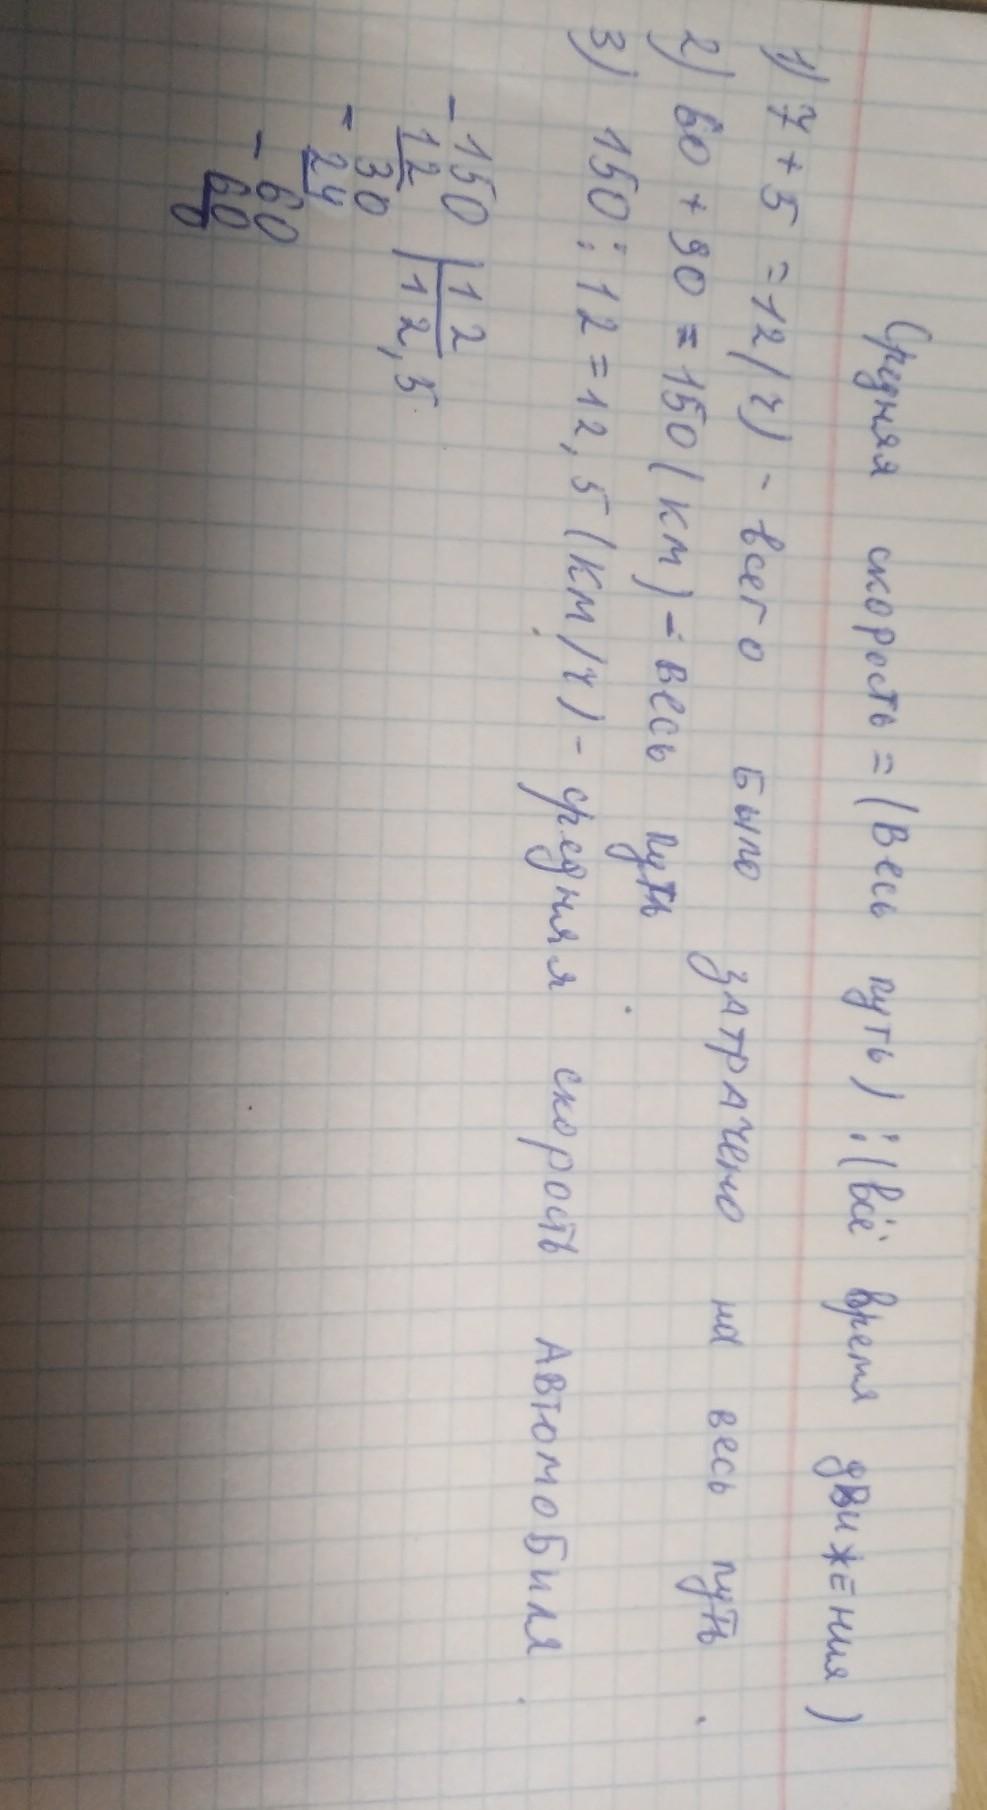 Средняя скорость = (Весь путь) : (всё время движения)
1) 7 + 5 = 12 (ч) - всего было затрачено на весь путь.
2) 60 + 90 = 150 (км) - весь путь.
3) 150 : 12 = 12,5 (км/ч) - средняя скорость автомобиля.
- 150 | 12
12 | 12,5
- 30
24
- 60
60
0